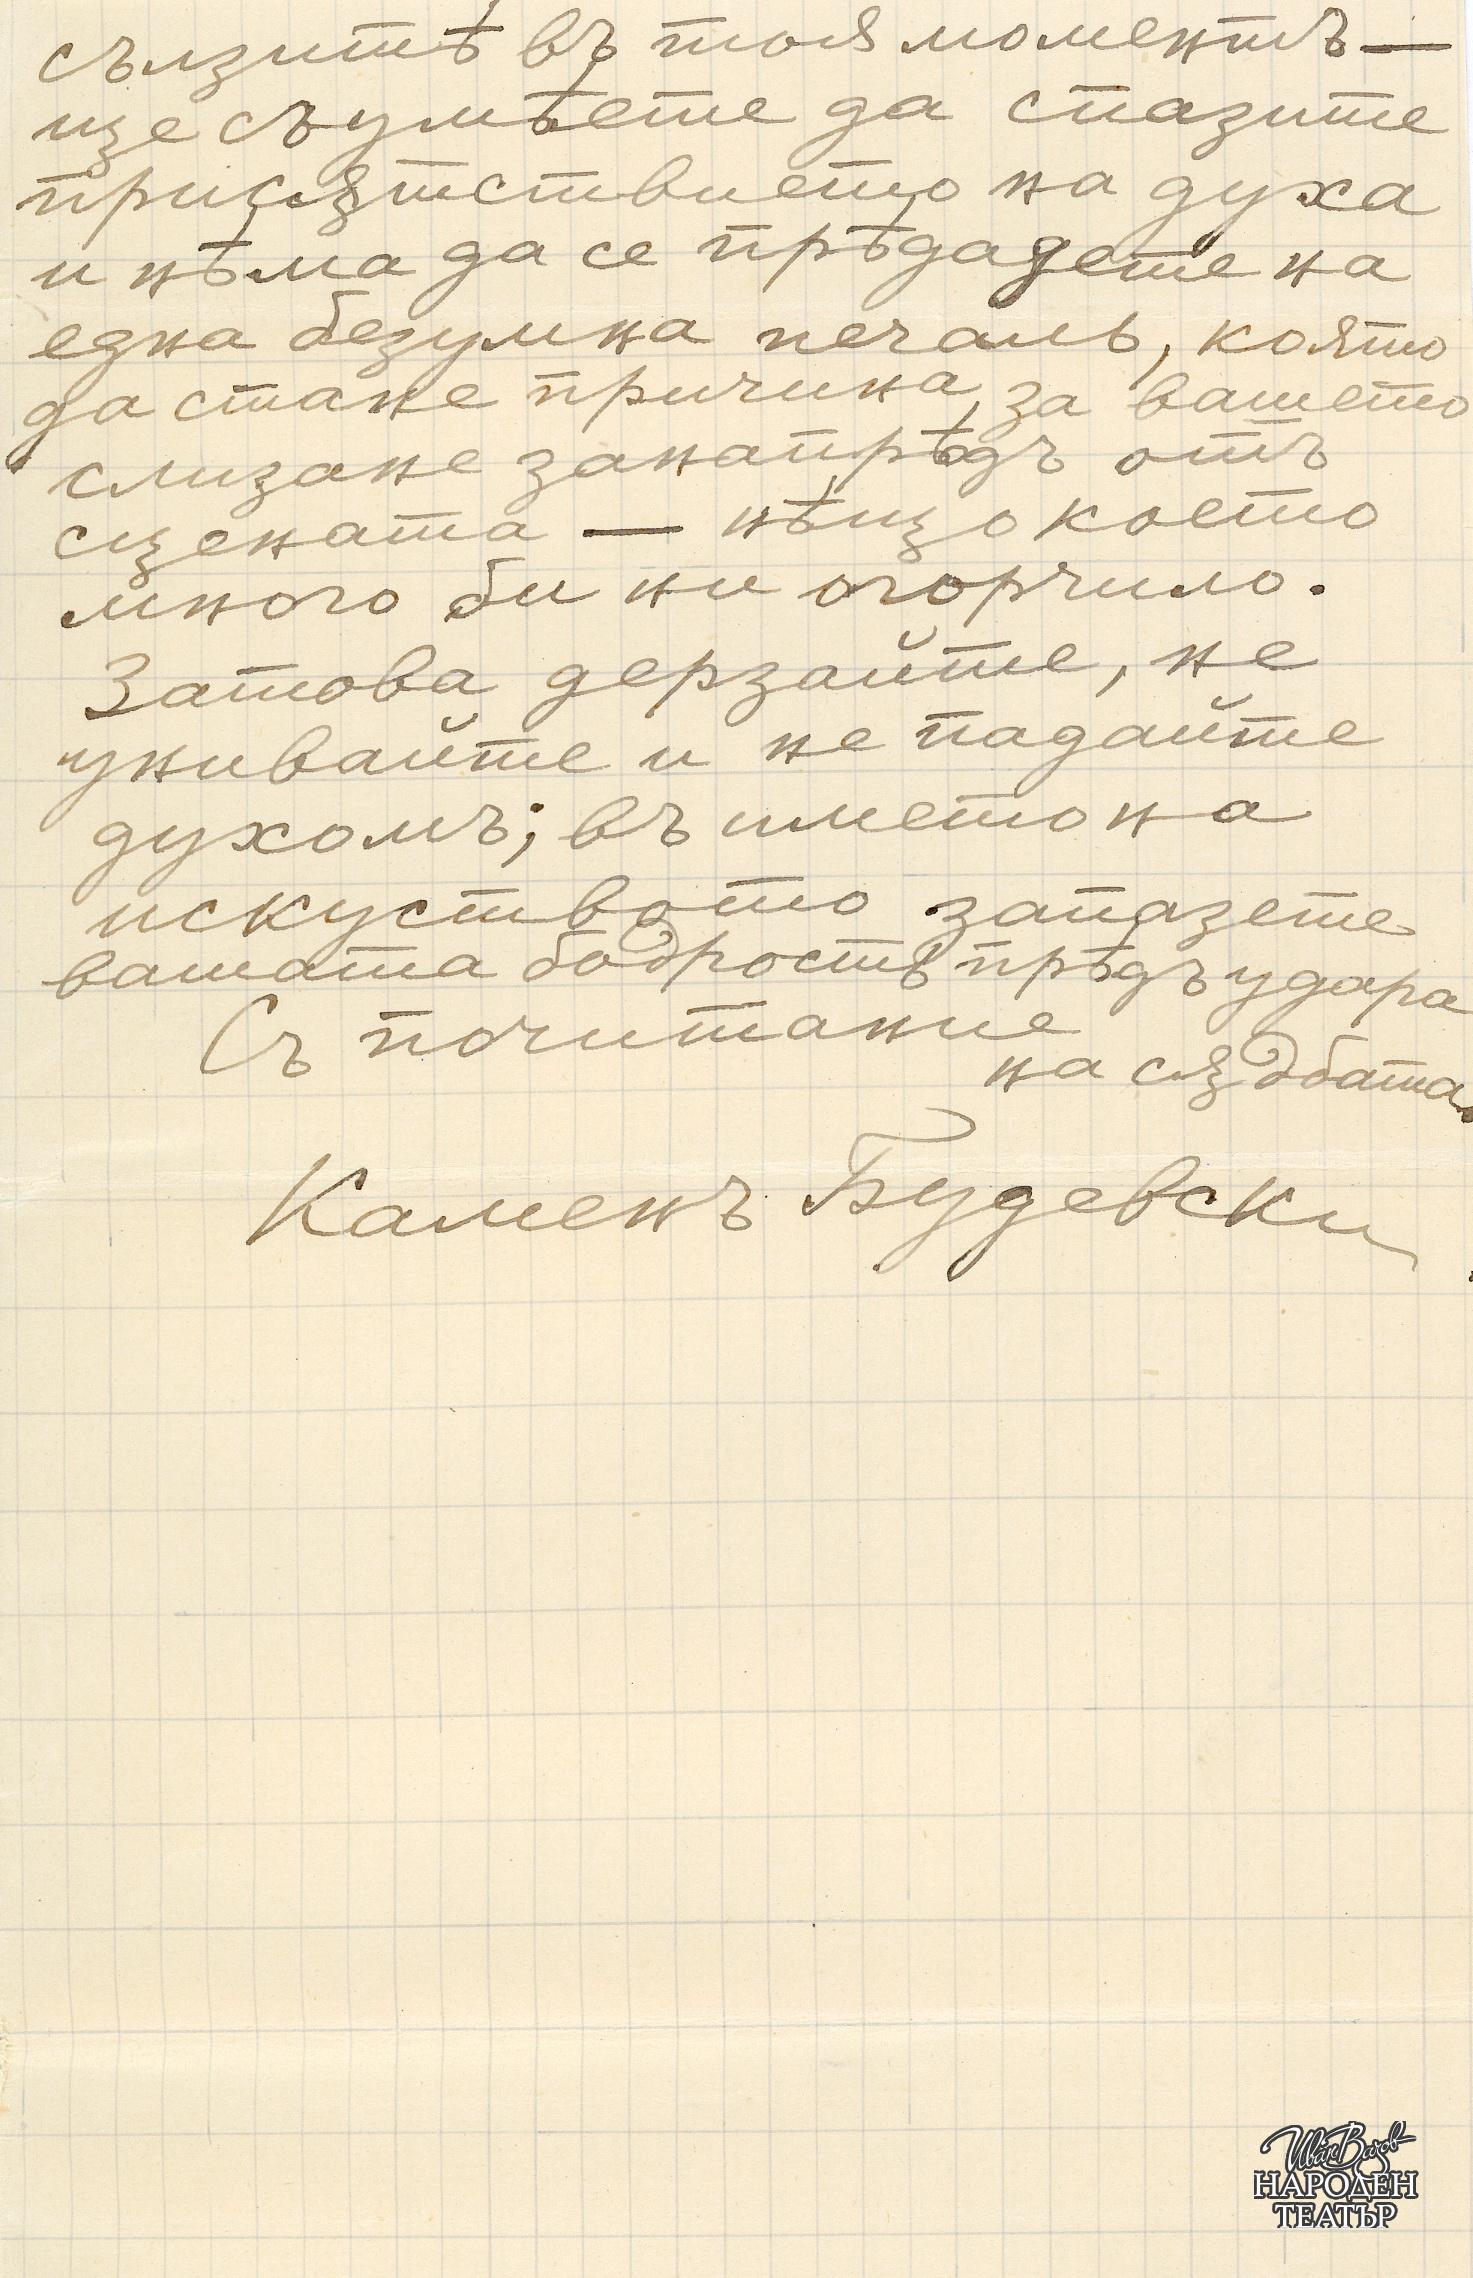 сълзитѣ въ тоя моментъ —
ще съумѣете да спазите
присѫтствието на духа
и нѣма да се прѣдадете на
една безумна печаль, която
да стане причина за вашето
слизане занапрѣдъ отъ
сцената — нѣщо което
много би ни огорчило.
Затова дерзайте, не
унивайте и не падайте
духомъ; въ името на
искуството запазете
вашата бодрость прѣдъ удара
на сѫдбата.
Съ почитание
Каменъ Будевски
Иван Вазов
НАРОДЕН
ТЕАТЪР